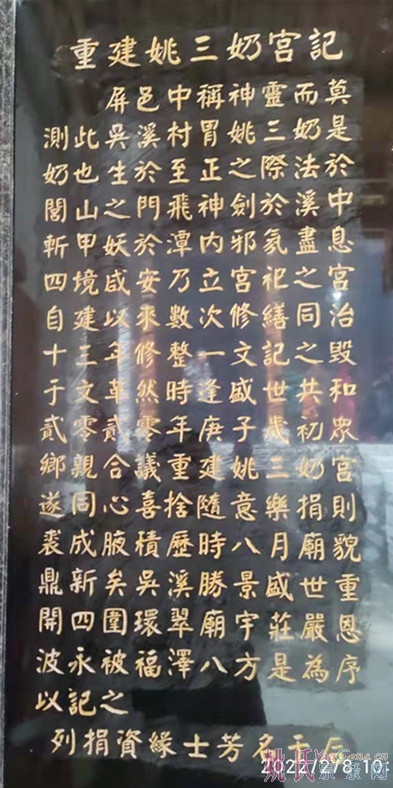 重建姚三奶宫記
屏邑中稱神靈而莫
測此吳溪村胃姚三奶是
奶也生於至正之際法於
閭山之門飛神劍於溪中
斬甲妖於潭內邪氣盡息
四境咸安乃立宮祀之宮
自建以來數次修繕同治
十三年修整一文記之毀
于文革然時逢盛世共和
貳零貳零年庚子歲初眾
鄉親合議重建姚三奶宮
遂同心喜捨隨意樂捐則
裘成腋積歷時八月廟貌
鼎新矣吳溪勝景盛世重
開四圍環翠廟宇莊嚴恩
波永被福澤八方是為序
以記之
列捐資緣士芳名于后
2022/2/8 10: